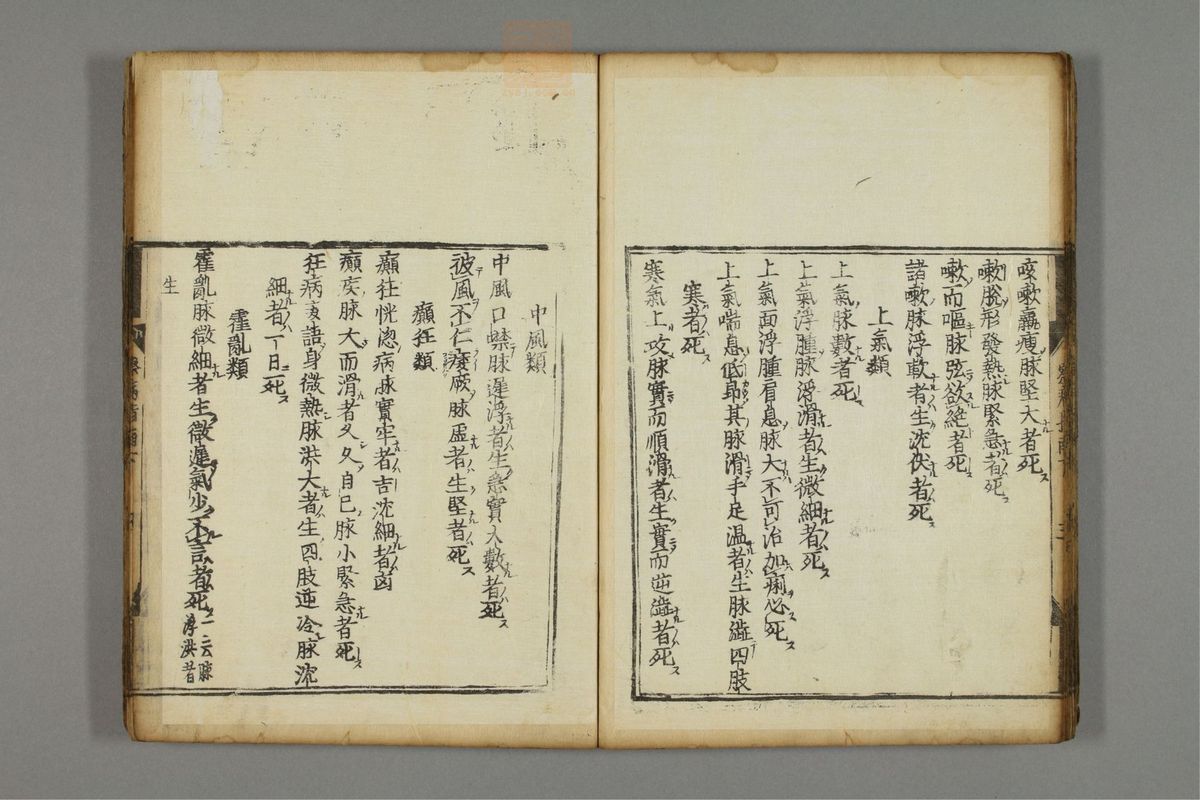 咳嗽羸瘦脉堅大者死
嗽脫形發熱脉緊急者死
嗽而嘔脉弦欲絕者死
諸嗽脉浮軟者生沈伏者死
上氣類
上氣脉數者死
上氣浮腫脉浮滑者生微細者死
上氣面浮腫肩息脉大不可治加痢必死
上氣喘息低昻其脉滑手足温者生脉澁四肢
寒者死
寒氣上攻脉實而順滑者生實而逆澁者死
中風類
中風口噤脉遲浮者生急實大數者死
彼風不仁痿厥脉虛者生堅者死
癲狂類
癲狂恍惚病脉實牢者吉沈細者㐫
癲疾脉大而滑者久久自已脉小緊急者死
狂病妄語身微熱脉洪大者生四肢逆冷脉沈
細者一日死
霍亂類
霍亂脉微細者生微遲氣少不言者死一云脉浮洪者
生